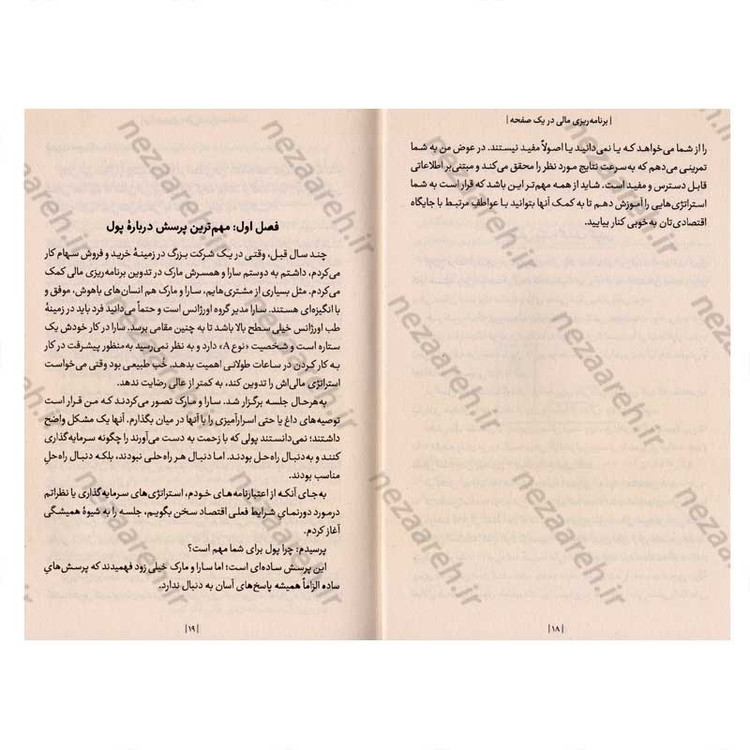 | برنامه‌ریزی مالی در یک صفحه |
را از شما می‌خواهد که یا نمی‌دانید یا اصولاً مفید نیستند. در عوض من به شما
تمرینی می‌دهم که به‌سرعت نتایج مورد نظر را محقق می‌کند و مبتنی بر اطلاعاتی
قابل دسترس و مفید است. شاید از همه مهم‌تر این باشد که قرار است به شما
استراتژی‌هایی را آموزش دهم تا به کمک آنها بتوانید با عواطف مرتبط با جایگاه
اقتصادی‌تان به‌خوبی کنار بیایید.
| ۱۸ |
فصل اول: مهم‌ترین پرسش دربارهٔ پول
چند سال قبل، وقتی در یک شرکت بزرگ در زمینهٔ خرید و فروش سهام کار
می‌کردم، داشتم به دوستم سارا و همسرش مارک در تدوین برنامه‌ریزی مالی کمک
می‌کردم. مثل بسیاری از مشتری‌هایم، سارا و مارک هم انسان‌های باهوش، موفق و
با انگیزه‌ای هستند. سارا مدیر گروه اورژانس است و حتماً می‌دانید فرد باید در زمینهٔ
طب اورژانس خیلی سطح بالا باشد تا به چنین مقامی برسد. سارا در کار خودش یک
ستاره است و شخصیت «نوع A» دارد و به نظر نمی‌رسید به‌منظور پیشرفت در کار
به کار کردن در ساعات طولانی اهمیت بدهد. خُب طبیعی بود وقتی می‌خواست
استراتژی مالی‌اش را تدوین کند، به کمتر از عالی رضایت ندهد.
به‌هرحال جلسه برگزار شد. سارا و مارک تصور می‌کردند که من قرار است
توصیه‌های داغ یا حتی اسرارآمیزی را با آنها در میان بگذارم. آنها یک مشکل واضح
داشتند؛ نمی‌دانستند پولی که با زحمت به دست می‌آورند را چگونه سرمایه‌گذاری
کنند و به‌دنبال راه‌حل بودند. اما دنبال هر راه‌حلی نبودند، بلکه دنبال راه‌حلِ
مناسب بودند.
به‌جای آنکه از اعتبارنامه‌های خودم، استراتژی‌های سرمایه‌گذاری یا نظراتم
درمورد دورنمای شرایط فعلی اقتصاد سخن بگویم، جلسه را به شیوهٔ همیشگی
آغاز کردم.
پرسیدم: چرا پول برای شما مهم است؟
این پرسش ساده‌ای است؛ اما سارا و مارک خیلی زود فهمیدند که پرسش‌هایِ
ساده الزاماً همیشه پاسخ‌های آسان به دنبال ندارد.
| ۱۹ |
nezaareh.ir